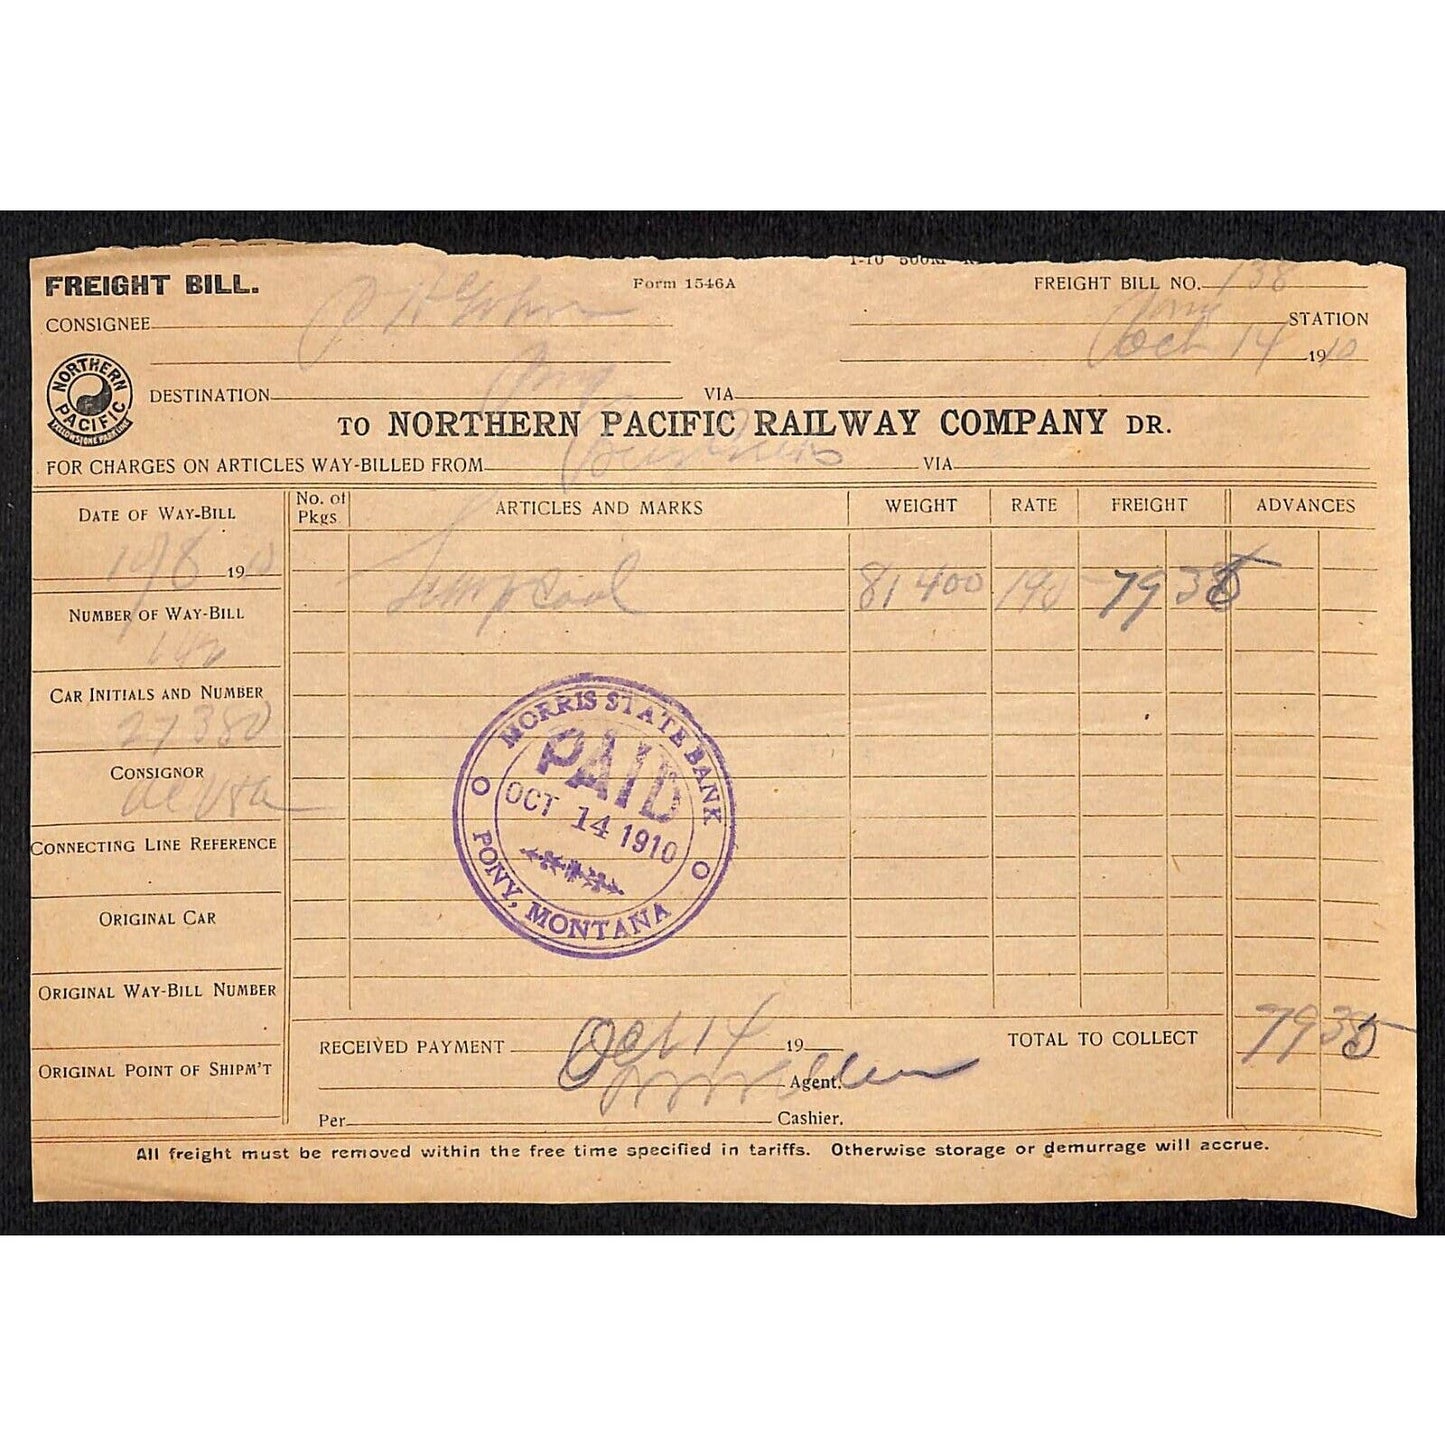 FREIGHT BILL.
Form 1546A
FREIGHT BILL NO. 138
CONSIGNEE
Pony STATION
Oct 14 1910
NORTHERN PACIFIC
YELLOWSTONE PARK LINE
DESTINATION Pony VIA
TO NORTHERN PACIFIC RAILWAY COMPANY DR.
FOR CHARGES ON ARTICLES WAY-BILLED FROM VIA
DATE OF WAY-BILL
No. of Pkgs
ARTICLES AND MARKS
WEIGHT
RATE
FREIGHT
ADVANCES
10/8 1910
Lump Coal 81400 195 79 35
NUMBER OF WAY-BILL
CAR INITIALS AND NUMBER
27380
CONSIGNOR
CONNECTING LINE REFERENCE
ORIGINAL CAR
ORIGINAL WAY-BILL NUMBER
ORIGINAL POINT OF SHIPM'T
MORRIS STATE BANK
PAID
OCT 14 1910
PONY, MONTANA
RECEIVED PAYMENT Oct 14 19
TOTAL TO COLLECT 79 35
Agent.
Per Cashier.
All freight must be removed within the free time specified in tariffs. Otherwise storage or demurrage will accrue.